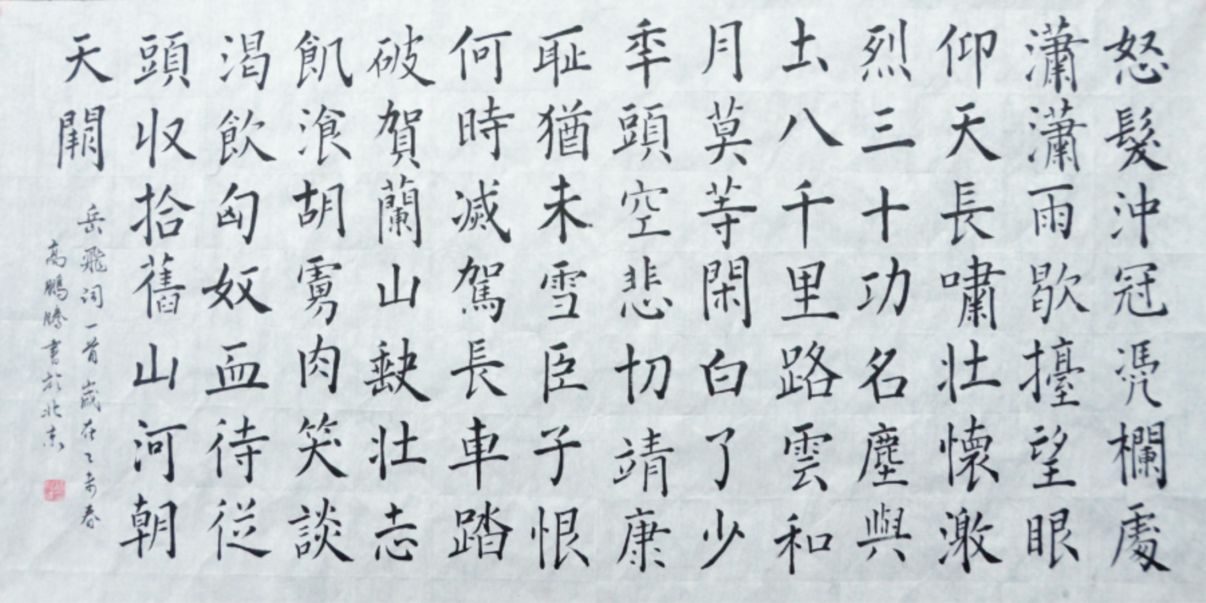 怒髮沖冠凴欄處
瀟瀟雨歇擡望眼
仰天長嘯壯懷激
烈三十功名塵與
土八千里路雲和
月莫等閑白了少
年頭空悲切靖康
耻猶未雪臣子恨
何時滅駕長車踏
破賀蘭山缺壯志
飢湌胡虜肉笑談
渴飲匈奴血待從
頭収拾舊山河朝
天闕
岳飛詞一首歲在乙未春
高鵬騰書於北京